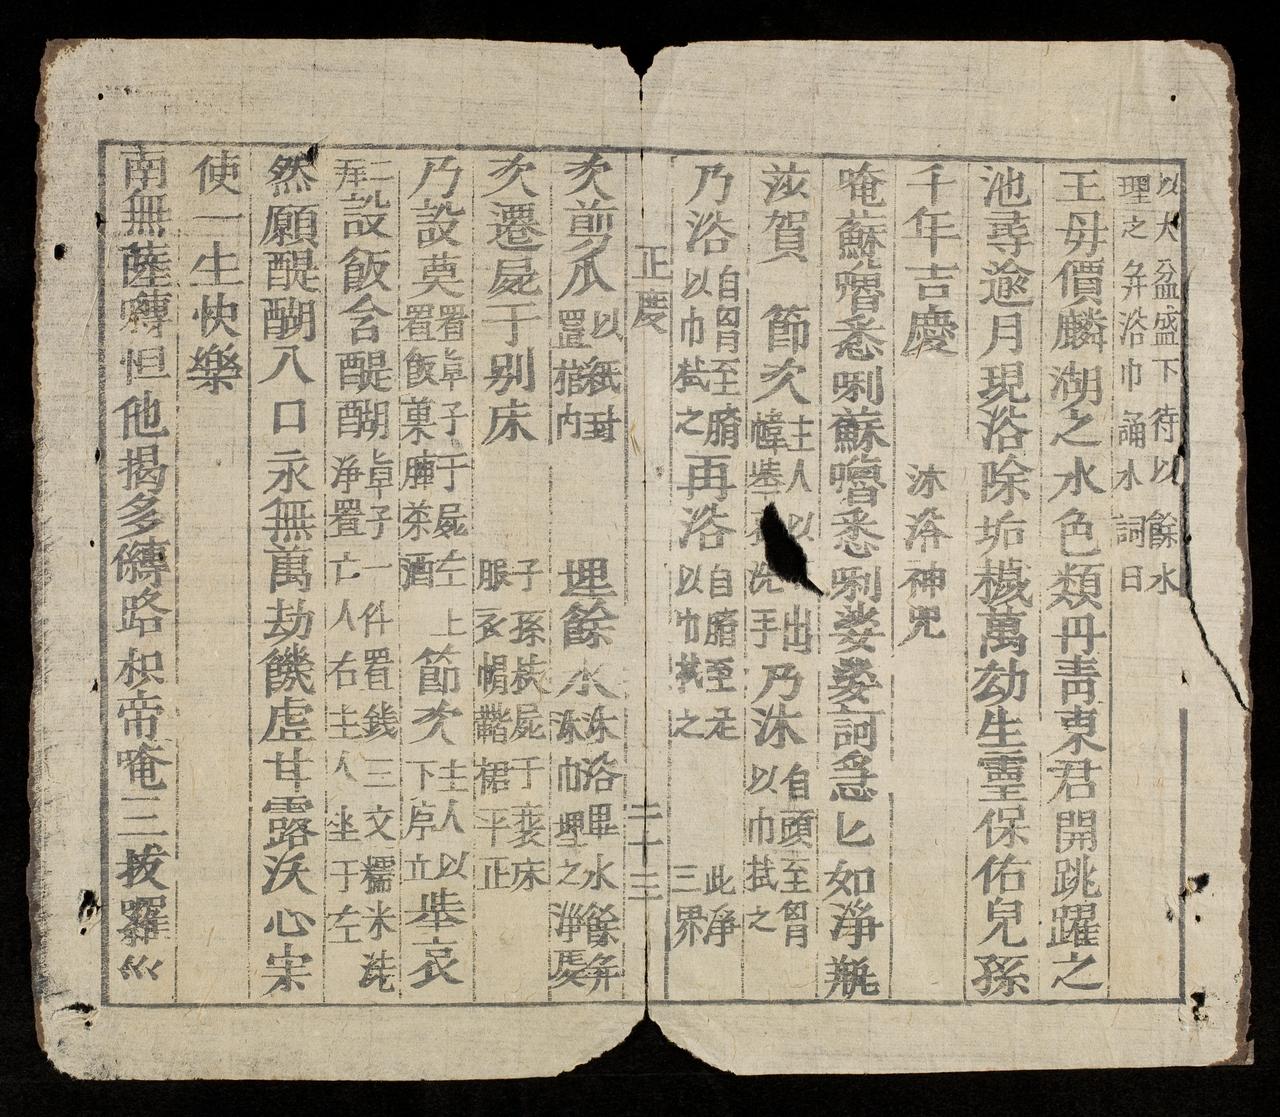 以大盆盛下待以餘水
理之弁浴巾誦水詞曰
王母價麟湖之水色類丹青東君開跳躍之
池尋逾月現浴除垢穢萬劫生靈保佑兒孫
千年吉慶 沐浴神咒
唵蘇嚕悉唎蘇嚕悉唎娑婆訶急匕如淨瓶
汝賀 節次主人以 出
幃垫 洗手乃沐自頭至胷
以巾拭之
乃浴自胷至臍
以巾拭之再浴自臍至足
以巾拭之 此淨
三界
正度 二十三
次剪爪以紙封
置棺内 埋餘水沐浴畢水餘弁
沐巾埋之淨處
次遷屍于别床 子孫 屍于喪床
服衣帽鞋裙平正
乃設奠置卓子于屍左
置飯菓 茶酒 上節次主人以
下序立舉哀
二拜設飯含醍醐卓子一件置銭三文糯米洗
醐浄置亡人右主人坐于左
然願醍醐入口永無萬劫饑虛甘露沃心宋
使一生快樂
南無薩嚩怛他揭多嚩路枳帝唵三拔羅巜